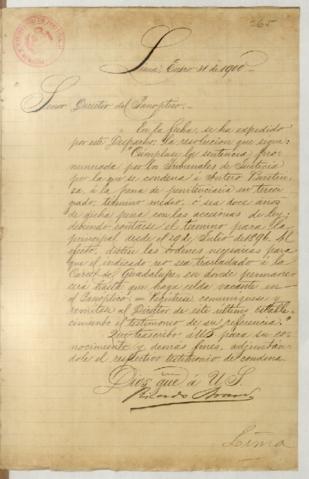 265
Lima, Enero 31 de 1900
Señor Director del Panóptico:
En la fecha se ha expedido
por este Despacho la resolucion que sigue:
"Cumplase la sentencia pro-
nunciada por los Tribunales de Justicia
por la que se condena á Antero
á la pena de penitenciaria en tercer
grado, termino medio, ó sea doce años
de dicha pena con las accesorias de ley;
debiendo contarse el termino para la
principal desde el 19 de Julio de 1896. Al
efecto, dicten las órdenes necesarias para
que el indicado reo sea trasladado á la
Carcel de Guadalupe, en donde permane-
cerá hasta que haya celda vacante en
el Panóptico; comuniquese y
remitase al Director de este ultimo estable-
cimiento el testimonio de su referencia."
Que trascribo á US para su co-
nocimiento y demas fines, adjuntán-
dole el respectivo testimonio de condena.
Dios gue á U.S.
Ricardo
Lima